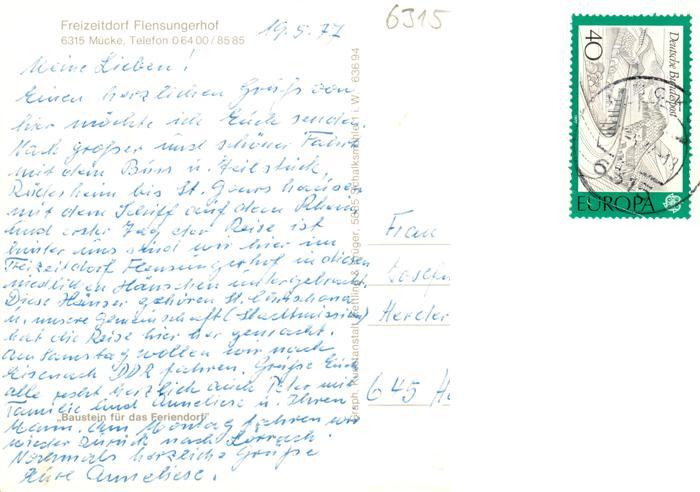 Freizeitdorf Flensungerhof
6315 Mücke, Telefon 0 64 00 / 85 85
19.5.77
6315
Meine Lieben!
Einen herzlichen Gruß von
hier möchte ich Euch senden.
Nach großer und schöner Fahrt
mit dem Buss u. Teilstück,
Rüdesheim bis St. Goarshausen
mit dem Schiff auf dem Rhein
und erster Tag der Reise ist
hinter uns sind wir hier im
Freizeitdorf Flensungerhof in diesen
niedlichen Häuschen untergebracht.
Diese Häuser gehören St. Chrischona
u. unsere Gemeinschaft (Stadtmission)
hat die Reise hier her gemacht.
Am Samstag wollen wir nach
Eisenach DDR fahren. Grüße Euch
alle recht herzlich auch Peter mit
Familie und Anneliese u. Ihren
Mann. Am Montag fahren wir
wieder zurück nach Lörrach.
Nochmals herzliche Grüße
Eure Anneliese.
"Baustein für das Feriendorf"
Graph. Kunstanstalt Krüger, 5885 Schalksmühle 1 i. W. 636 94
Frau
Josefa
Herder
645 Ha
Deutsche Bundespost
40
EUROPA